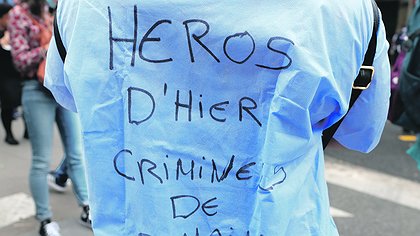 HEROS
D'HIER
CRIMINELS
DE